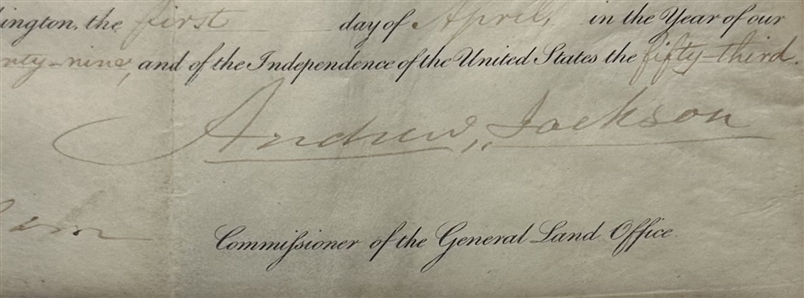 ington, the first day of April, in the Year of our
nty-nine, and of the Independence of the United States the fifty-third.
Andrew Jackson
Commissioner of the General Land Office